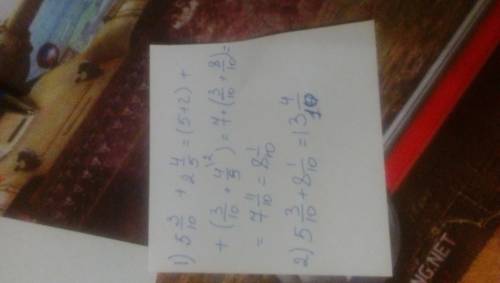 1) 5 3/10 + 2 4/5 = (5+2) +
+ (3/10 + 4/5 ^\2) = 7 + (3/10 + 8/10) =
= 7 11/10 = 8 1/10
2) 5 3/10 + 8 1/10 = 13 4/10
NG.NET